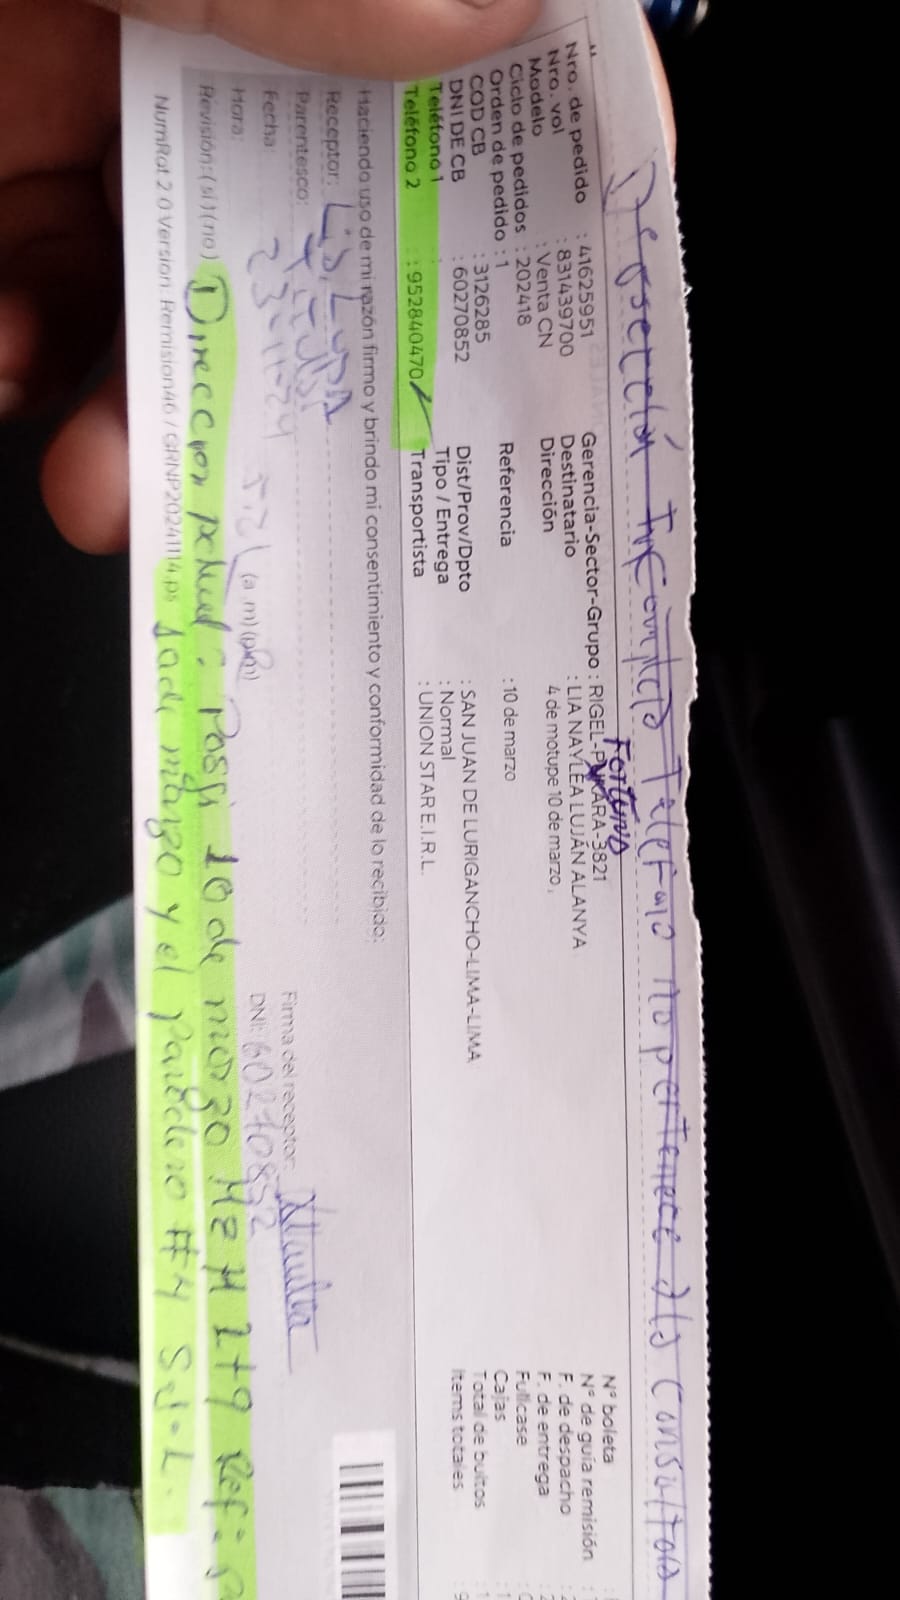 Dirección incorrecta Teléfono no pertenece a la consultora
Nro. de pedido : 41625951
Nro. vol : 831439700
Modelo : Venta CN
Ciclo de pedidos : 202418
Orden de pedido : 1
COD CB : 3126285
DNI DE CB : 60270852
Teléfono 1 :
Teléfono 2 : 952840470
Fortuno
Gerencia-Sector-Grupo : RIGEL-PUKARA-3821
Destinatario : LIA NAYLEA LUJÁN ALANYA
Dirección 4 de motupe 10 de marzo,
Referencia : 10 de marzo
Dist/Prov/Dpto : SAN JUAN DE LURIGANCHO-LIMA-LIMA
Tipo / Entrega : Normal
Transportista : UNION STAR E.I.R.L.
N° boleta :
N° de guía remisión :
F. de despacho
F. de entrega
Fullcase
Cajas
Total de bultos
Items totales
Haciendo uso de mi razón firmo y brindo mi consentimiento y conformidad de lo recibido:
Receptor:
Parentesco:
Fecha: 23-11-24
Hora: (a.m) (p.m)
Firma del receptor:
DNI: 60270852
Revisión: (si) (no)
Direccion actual: Psj 10 de marzo Mz H Lt 9 Ref:
NumRot 2.0 Version: Remision46 / GRNP20241114.ps
10 de marzo y el paradero #4 SJL.